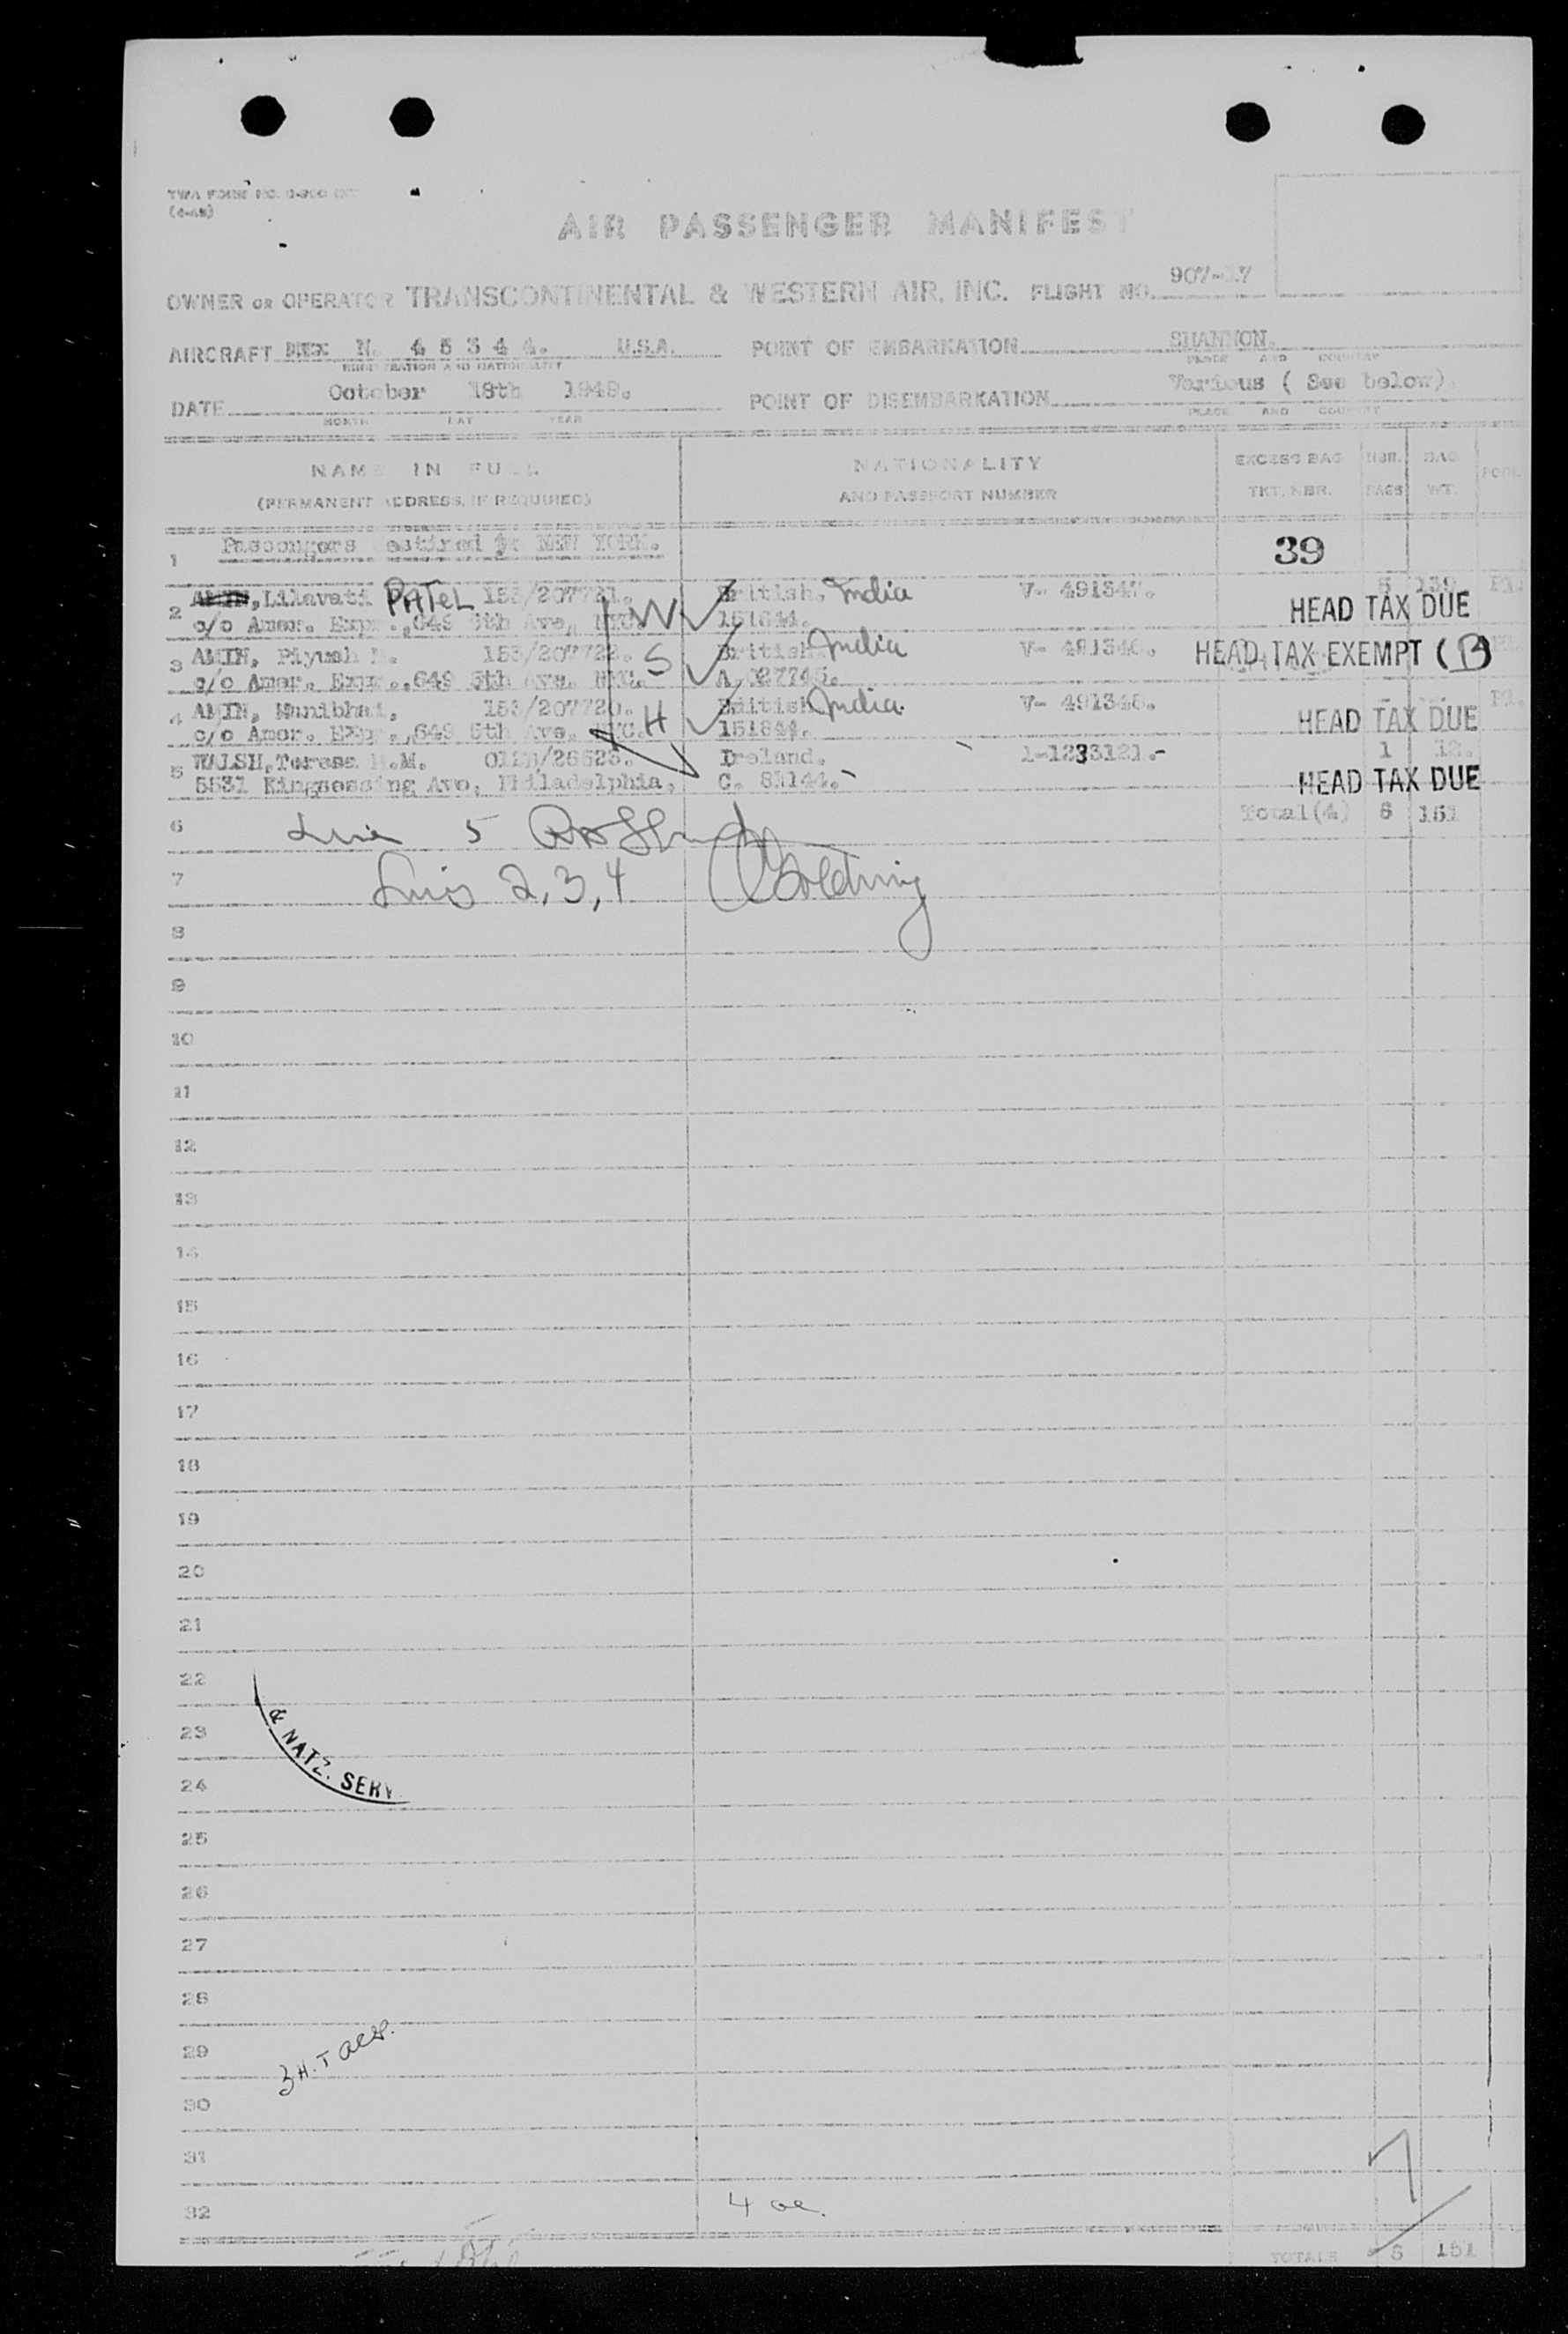 TWA FORM NO.
AIR PASSENGER MANIFEST
OWNER OR OPERATOR TRANSCONTINENTAL & WESTERN AIR, INC. FLIGHT NO. 907-17
AIRCRAFT N. 45344. U.S.A. POINT OF EMBARKATION SHANNON.
REGISTRATION AND NATIONALITY PLACE AND COUNTRY
DATE October 18th 1948. POINT OF DISEMBARKATION Various ( See below)
MONTH DAY YEAR PLACE AND COUNTRY
NAME IN FULL NATIONALITY EXCESS BAG NBR. BAG
(PERMANENT ADDRESS, IF REQUIRED) AND PASSPORT NUMBER TKT. NBR. PAGS WT.
1 Passengers destined to NEW YORK. 39
2 AMIN, Lilavati PATEL 153/207721. W British. India V- 491347. 5 139
c/o Amer. Exp., 649 5th Ave, NYC. 151844. HEAD TAX DUE
3 AMIN, Piyush M. 153/207722. S British India V- 491346. HEAD TAX EXEMPT (B)
c/o Amer. Exp., 649 5th Ave. NYC. A. 027745.
4 AMIN, Manibhai, 153/207720. H British India V- 491345.
c/o Amer. Exp., 649 5th Ave. NYC. 151844. HEAD TAX DUE
5 WALSH, Teresa M. Ireland. 1-1233121.- 1 12.
5531 Kingsessing Ave, Philadelphia, HEAD TAX DUE
6 Line 5 Total(4) 6 151
7 Lines 2,3,4 Golding
8
9
10
11
12
13
14
15
16
17
18
19
20
21
22
23
& NATZ. SERV
24
25
26
27
28
29
3 H.T
30
31
32
4
TOTALS 6 151